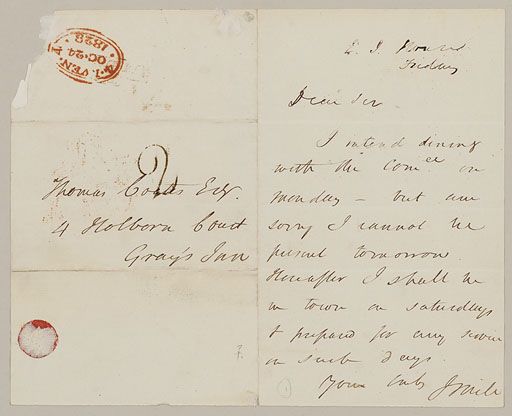 OC·24
1828
2
Thomas Coates Esq.
4 Holborn Court
Gray's Inn
E. I. House
Friday
Dear Sir
I intend dining
with the Com.ee on
monday – but am
sorry I cannot be
present tomorrow.
Hereafter I shall be
in town on saturdays
& prepared for any
on such days.
Yours J Mill
7.
1